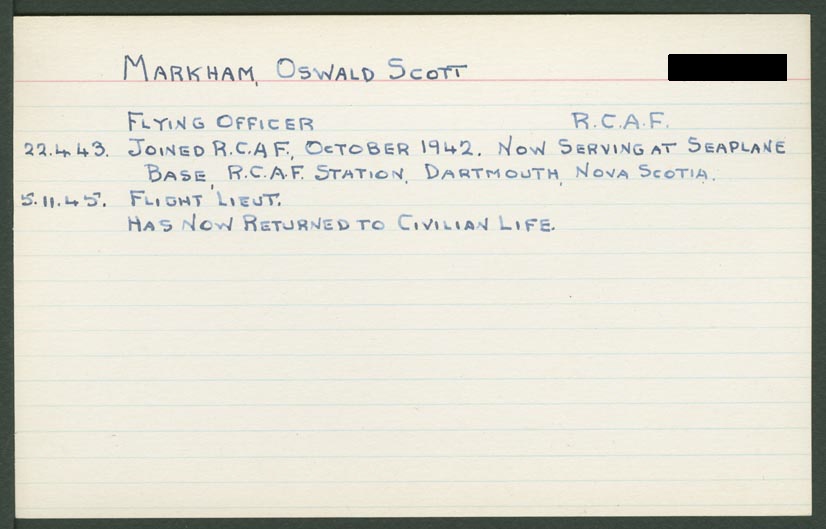 MARKHAM, OSWALD SCOTT
FLYING OFFICER R.C.A.F.
22.4.43. JOINED R.C.A.F., OCTOBER 1942. NOW SERVING AT SEAPLANE
BASE, R.C.A.F. STATION, DARTMOUTH, NOVA SCOTIA.
5.11.45. FLIGHT LIEUT.
HAS NOW RETURNED TO CIVILIAN LIFE.